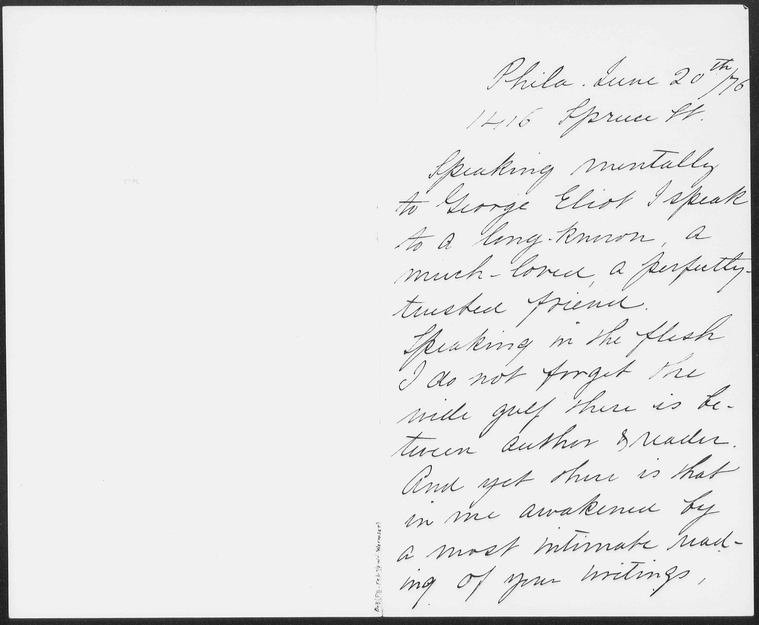 Phila. June 20th/76
1416 Spruce St.
Speaking mentally
to George Eliot I speak
to a long-known, a
much-loved, a perfectly-
trusted friend.
Speaking in the flesh
I do not forget the
wide gulf there is be-
tween author & reader.
And yet there is that
in me awakened by
a most intimate read-
ing of your writings,